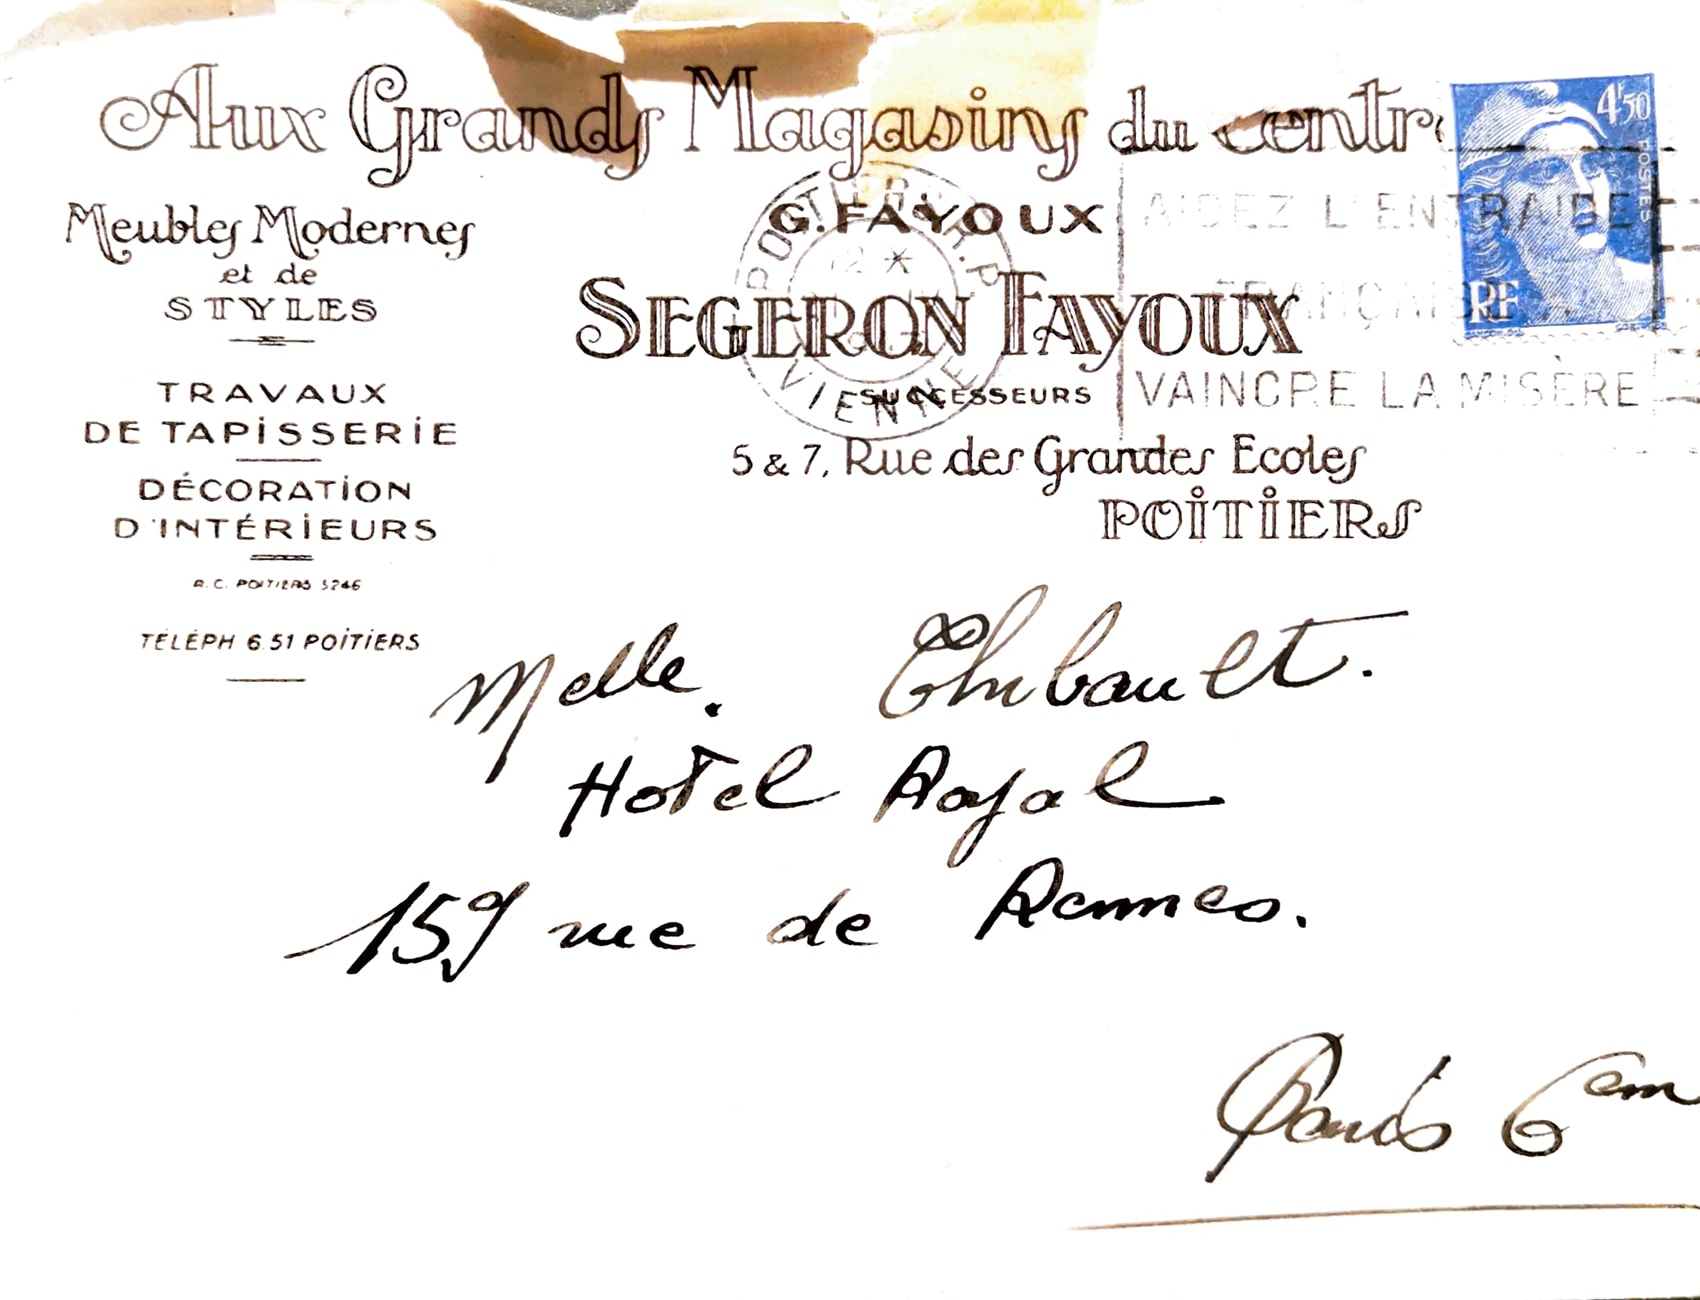 Aux Grands Magasins du centre
Meubles Modernes
et de
STYLES
TRAVAUX
DE TAPiSSERiE
DÉCORATiON
D'INTÉRiEURS
R.C. POITIERS 5246
TÉLÉPH 6.51 POiTiERS
G. FAYOUX
SEGERON FAYOUX
SUCCESSEURS
5 & 7, Rue des Grandes Ecoles
POiTiERS
POITIERS R.P
12 *
VIENNE
AIDEZ L'ENTRAIDE
FRANÇAISE
VAINCRE LA MISÈRE
4F50
POSTES
RF
Melle. Thibault.
Hotel Royal
159 rue de Rennes.
Paris 6em